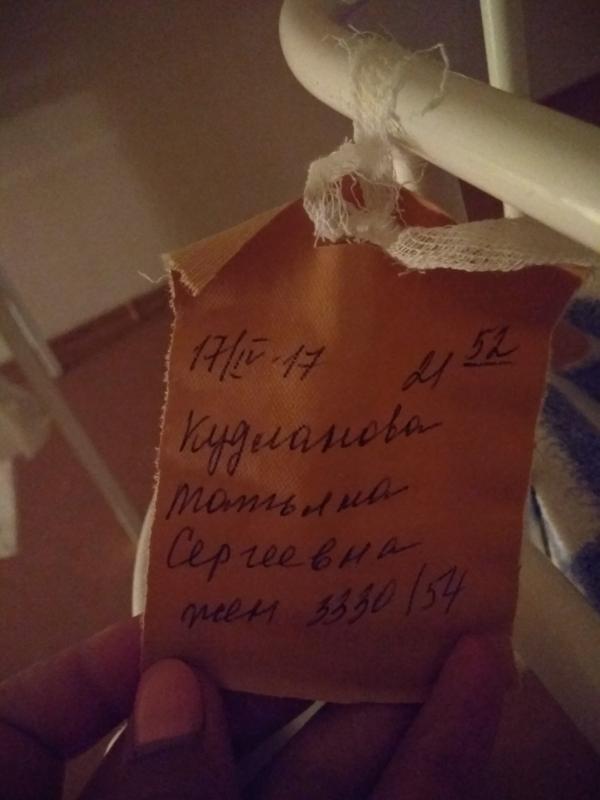 17/IV-17 21 52
Кудланова
Татьяна
Сергеевна
жен 3330/54